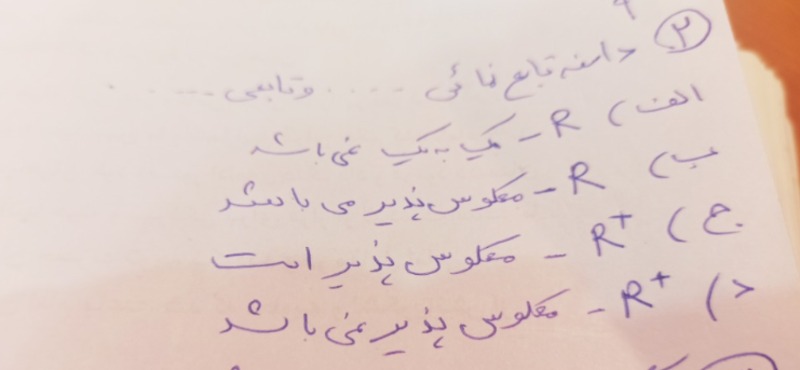 ۲) دامنه تابع نمائی ..... و تابعی ......
الف) R - یک به یک نمی باشد
ب) R - معکوس پذیر می باشد
ج) R⁺ - معکوس پذیر است
د) R⁺ - معکوس پذیر نمی باشد